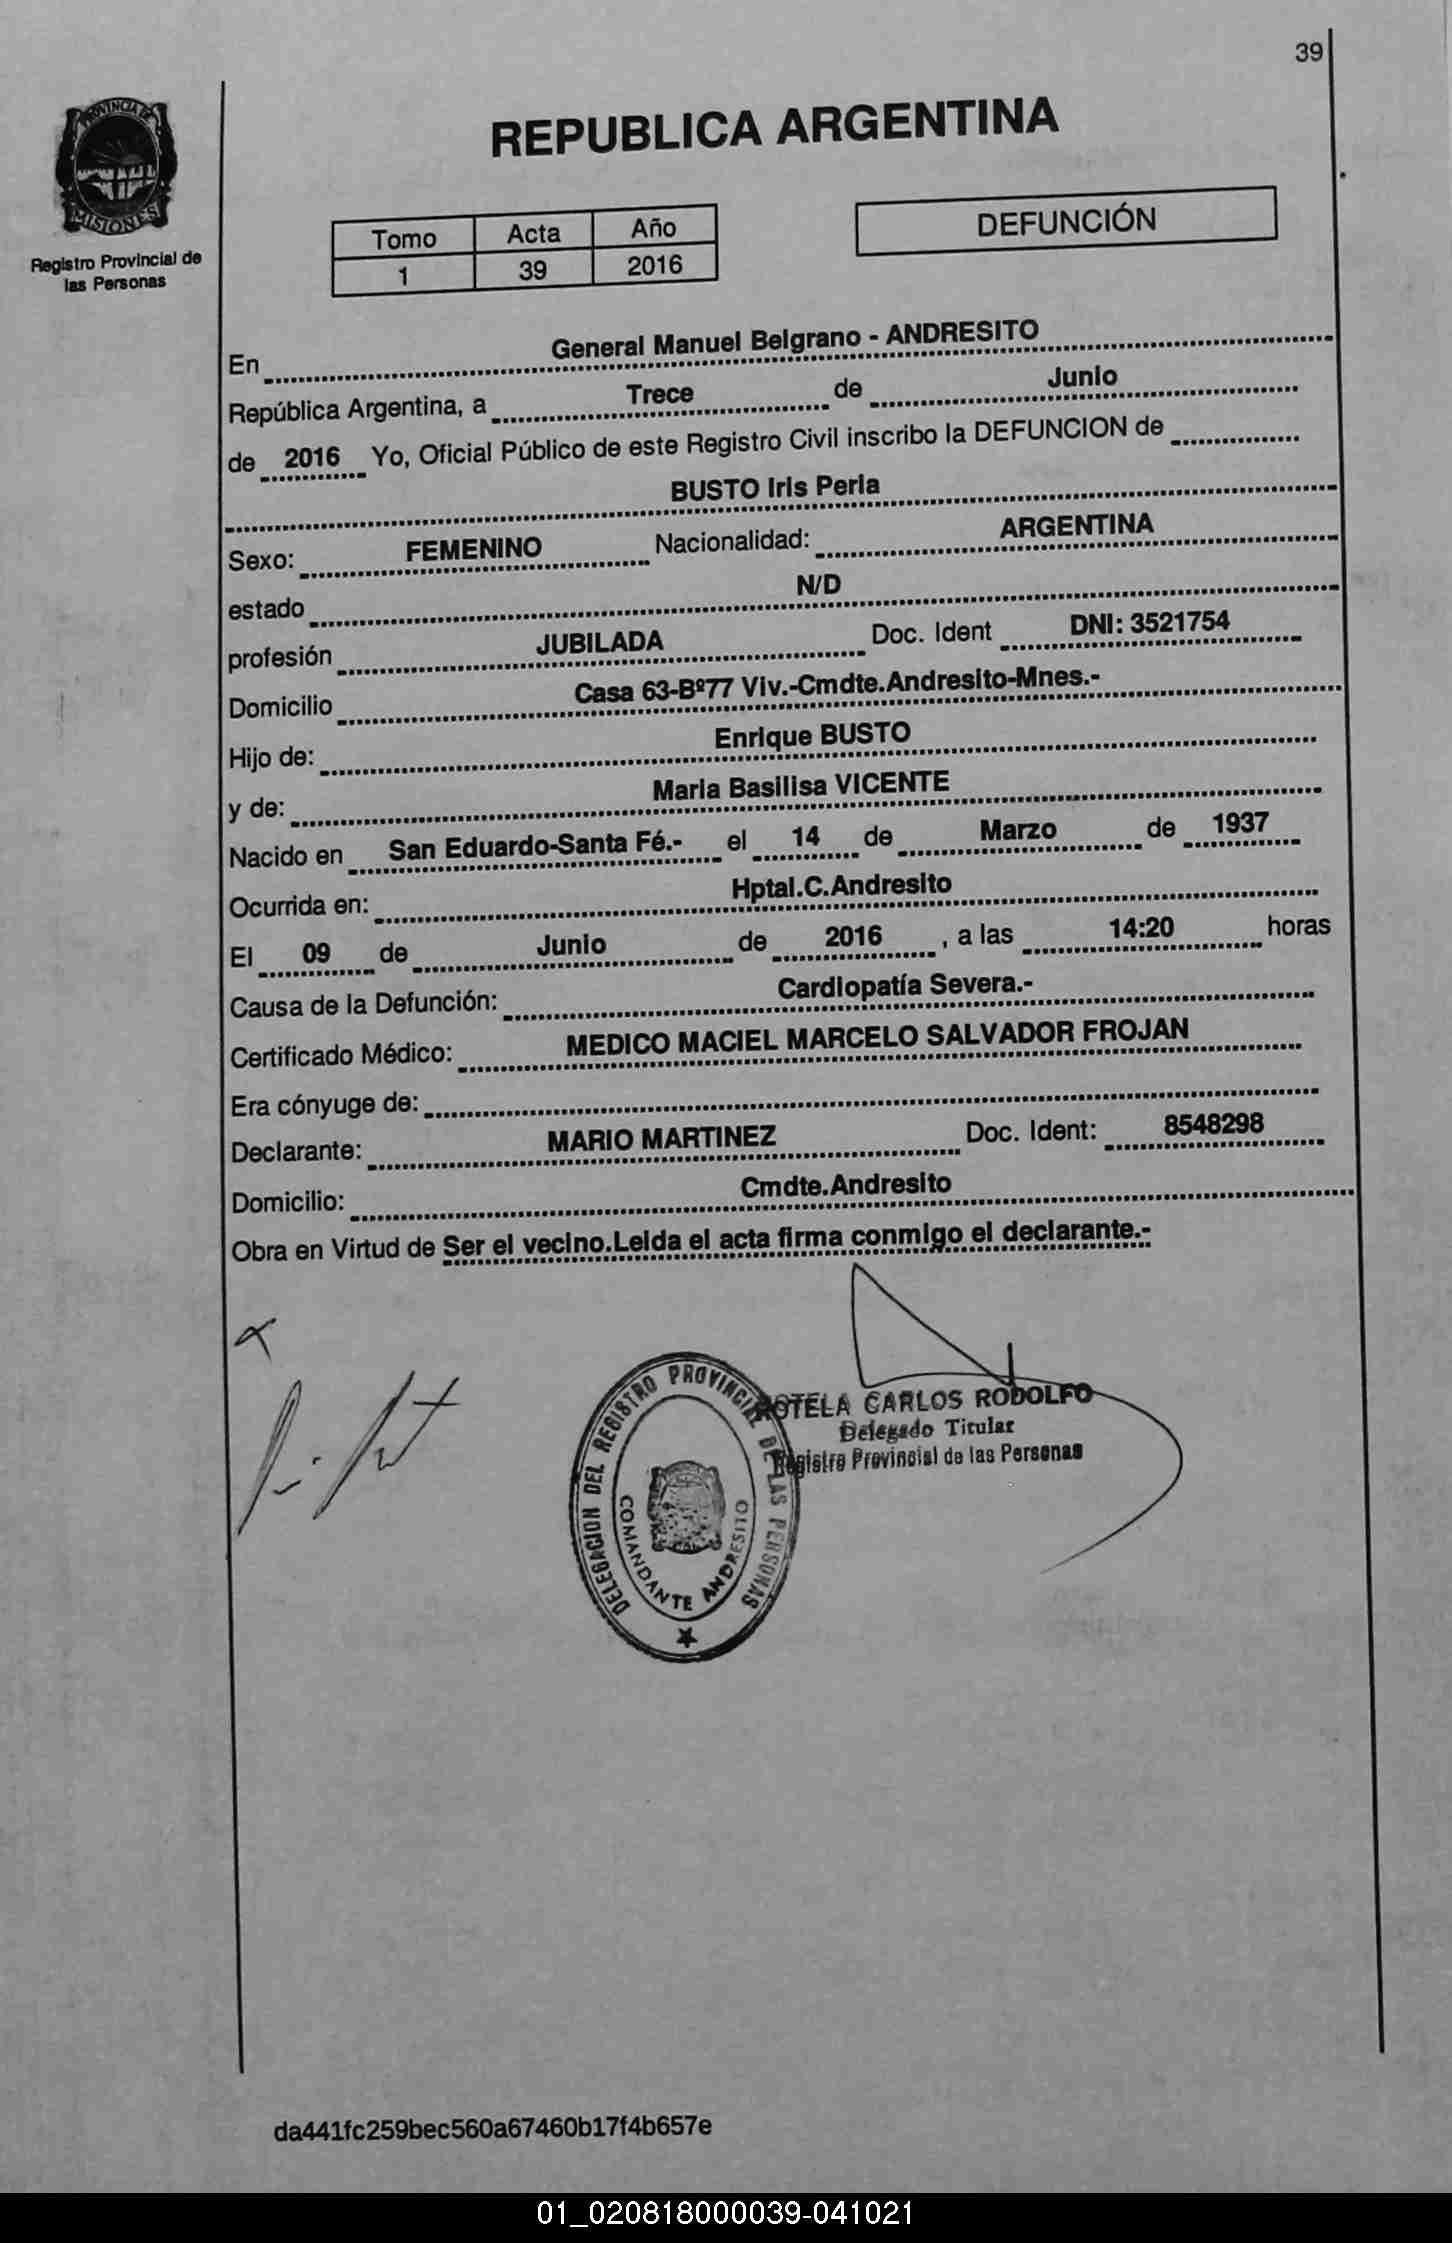 39
PROVINCIA DE
MISIONES
Registro Provincial de
las Personas
REPUBLICA ARGENTINA
Tomo Acta Año
1 39 2016
DEFUNCIÓN
En General Manuel Belgrano - ANDRESITO
República Argentina, a Trece de Junio
de 2016 Yo, Oficial Público de este Registro Civil inscribo la DEFUNCION de
BUSTO Iris Perla
Sexo: FEMENINO Nacionalidad: ARGENTINA
estado N/D
profesión JUBILADA Doc. Ident DNI: 3521754
Domicilio Casa 63-Bº77 Viv.-Cmdte.Andresito-Mnes.-
Hijo de: Enrique BUSTO
y de: Maria Basilisa VICENTE
Nacido en San Eduardo-Santa Fé.- el 14 de Marzo de 1937
Ocurrida en: Hptal.C.Andresito
El 09 de Junio de 2016 , a las 14:20 horas
Causa de la Defunción: Cardiopatía Severa.-
Certificado Médico: MEDICO MACIEL MARCELO SALVADOR FROJAN
Era cónyuge de:
Declarante: MARIO MARTINEZ Doc. Ident: 8548298
Domicilio: Cmdte.Andresito
Obra en Virtud de Ser el vecino.Leida el acta firma conmigo el declarante.-
DELEGACION DEL REGISTRO PROVINCIAL DE LAS PERSONAS
COMANDANTE ANDRESITO
ROTELA CARLOS RODOLFO
Delegado Titular
Registro Provincial de las Personas
da441fc259bec560a67460b17f4b657e
01_020818000039-041021